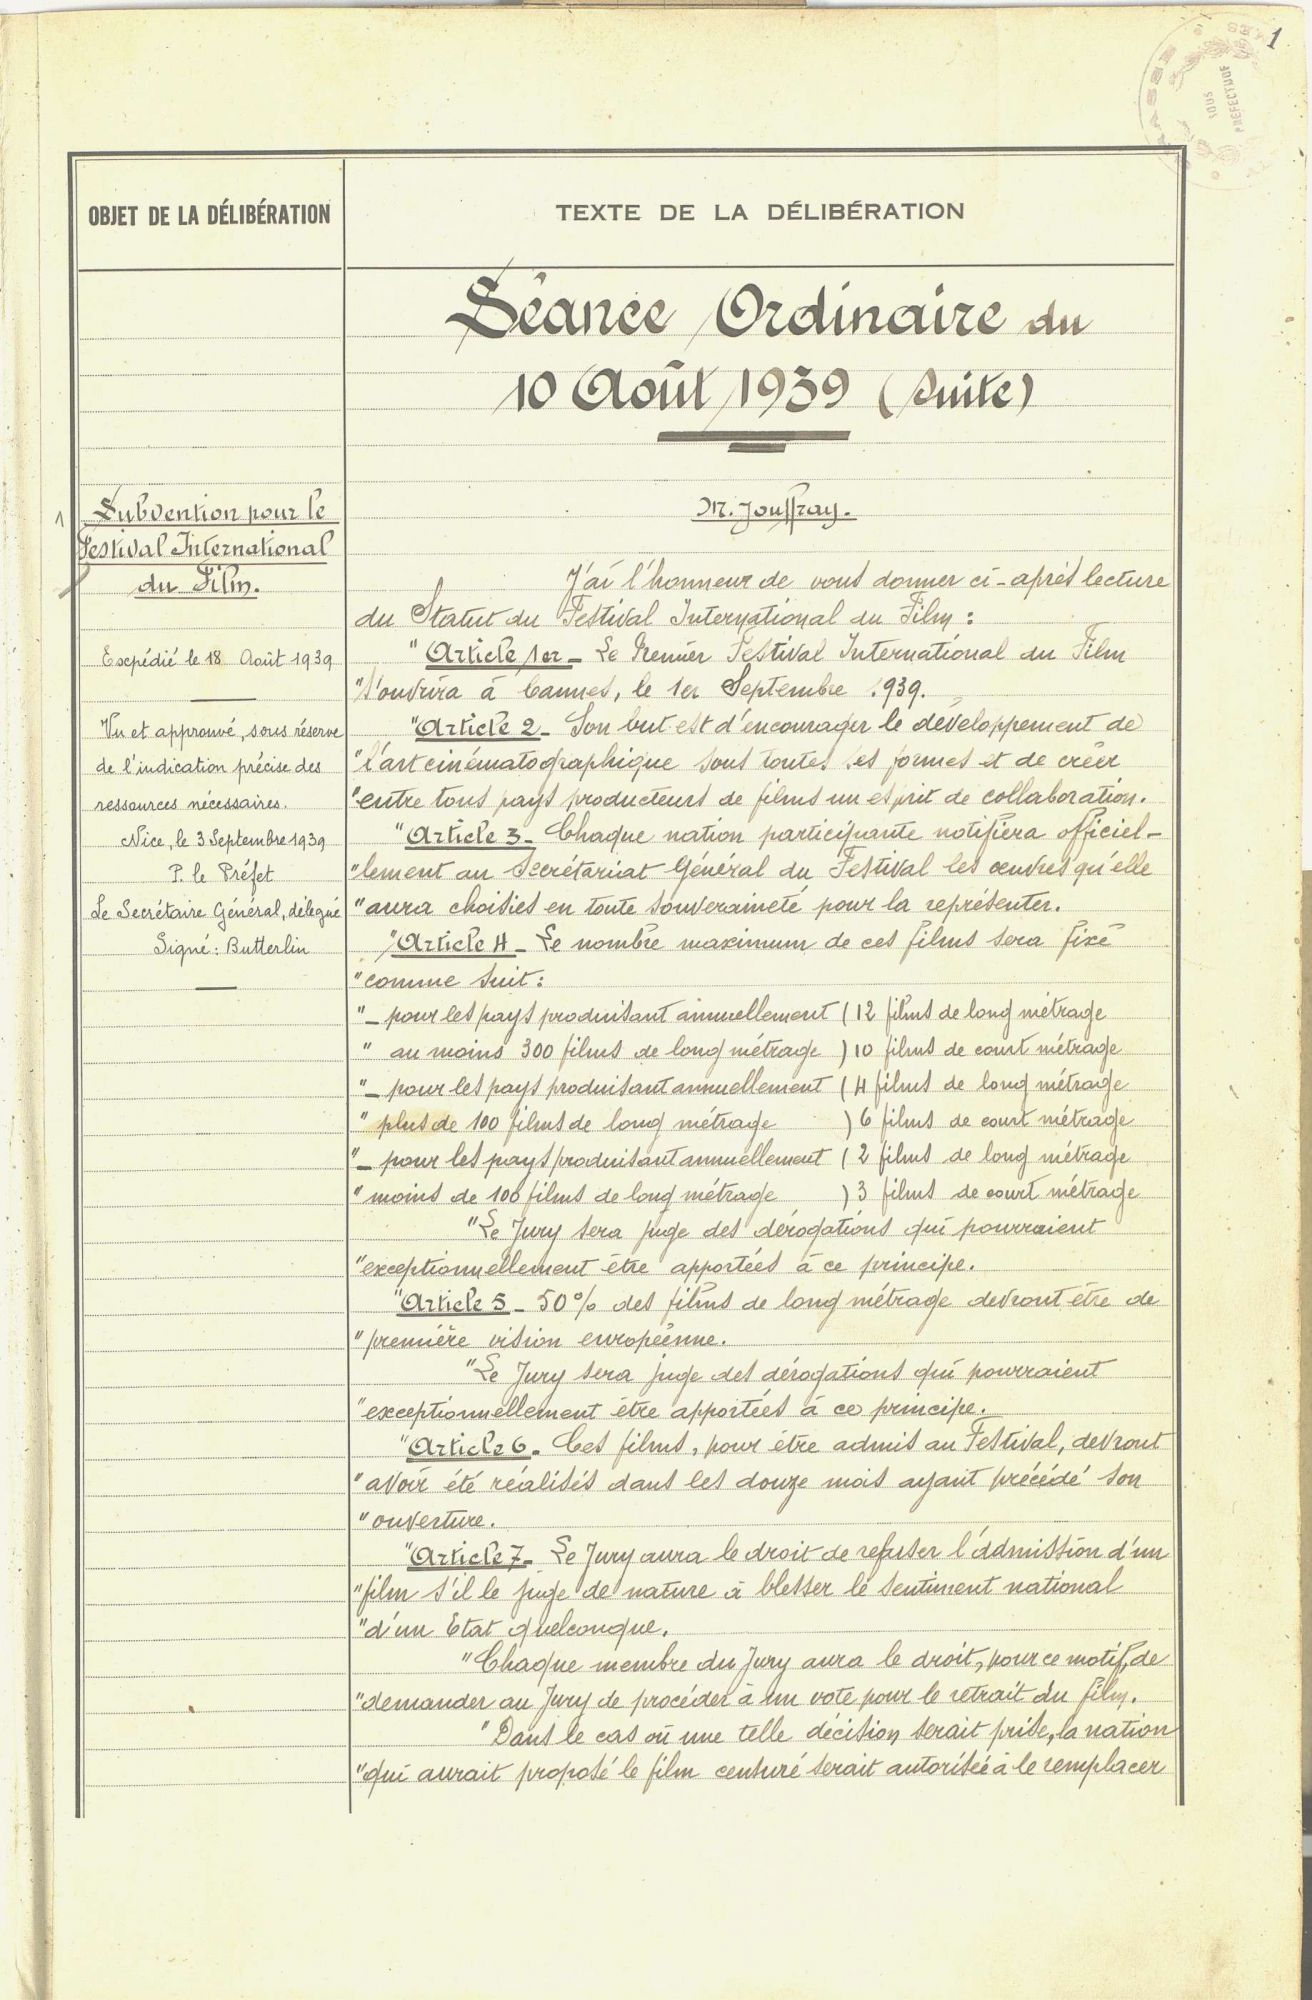 1
SOUS
PRÉFECTURE
OBJET DE LA DÉLIBÉRATION
TEXTE DE LA DÉLIBÉRATION
Séance Ordinaire du
10 Août 1939 (suite)
Subvention pour le
Festival International
du Film.
Expédié le 18 Août 1939
Vu et approuvé, sous réserve
de l'indication précise des
ressources nécessaires.
Nice, le 3 Septembre 1939
P. le Préfet
Le Secrétaire Général, délégué
Signé : Butterlin
M. Jouffray.
J'ai l'honneur de vous donner ci-après lecture
du Statut du Festival International du Film :
" Article 1er - Le Premier Festival International du Film
"s'ouvrira à Cannes, le 1er Septembre 1939.
"Article 2 - Son but est d'encourager le développement de
"l'art cinématographique sous toutes ses formes et de créer
"entre tous pays producteurs de films un esprit de collaboration.
"Article 3 - Chaque nation participante notifiera officiel-
"lement au Secrétariat Général du Festival les œuvres qu'elle
"aura choisies en toute souveraineté pour la représenter.
"Article 4 - Le nombre maximum de ces films sera fixé
"comme suit :
"- pour les pays produisant annuellement ( 12 films de long métrage
" au moins 300 films de long métrage ) 10 films de court métrage
"- pour les pays produisant annuellement ( 4 films de long métrage
" plus de 100 films de long métrage ) 6 films de court métrage
"- pour les pays produisant annuellement ( 2 films de long métrage
" moins de 100 films de long métrage ) 3 films de court métrage
"Le Jury sera juge des dérogations qui pourraient
"exceptionnellement être apportées à ce principe.
"Article 5 - 50% des films de long métrage devront être de
"première vision européenne.
"Le Jury sera juge des dérogations qui pourraient
"exceptionnellement être apportées à ce principe.
"Article 6 - Ces films, pour être admis au Festival, devront
"avoir été réalisés dans les douze mois ayant précédé son
"ouverture.
"Article 7 - Le Jury aura le droit de refuser l'admission d'un
"film s'il le juge de nature à blesser le sentiment national
"d'un Etat quelconque.
"Chaque membre du Jury aura le droit, pour ce motif, de
"demander au Jury de procéder à un vote pour le retrait du film.
"Dans le cas où une telle décision serait prise, la nation
"qui aurait proposé le film censuré serait autorisée à le remplacer